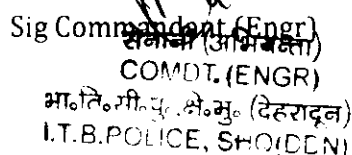 Sig Commandant (Engr)
सेनानी (अभियन्ता)
COMDT. (ENGR)
भा॰ति॰सी॰पु॰ क्षे॰मु॰ (देहरादून)
I.T.B.POLICE, SHQ(DDN)